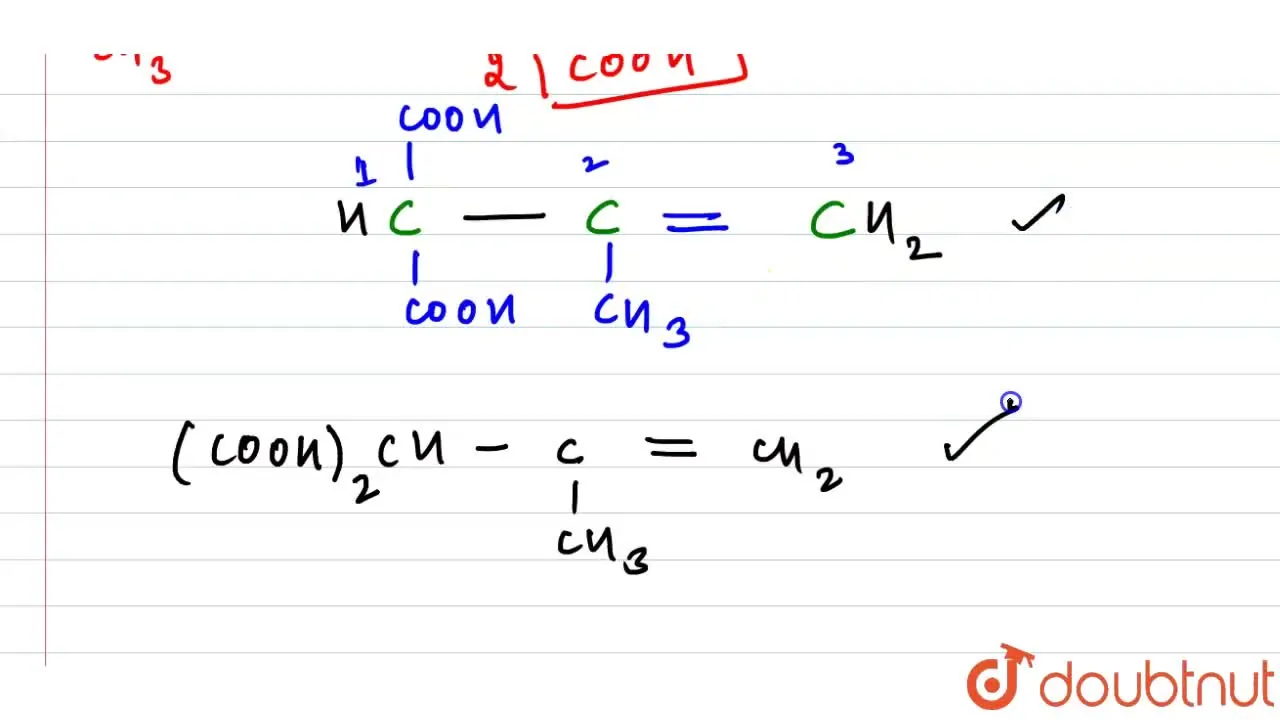 CH3 2 COOH
COOH
1 2 3
HC — C = CH2
COOH CH3
(COOH)2CH - C = CH2
CH3
doubtnut